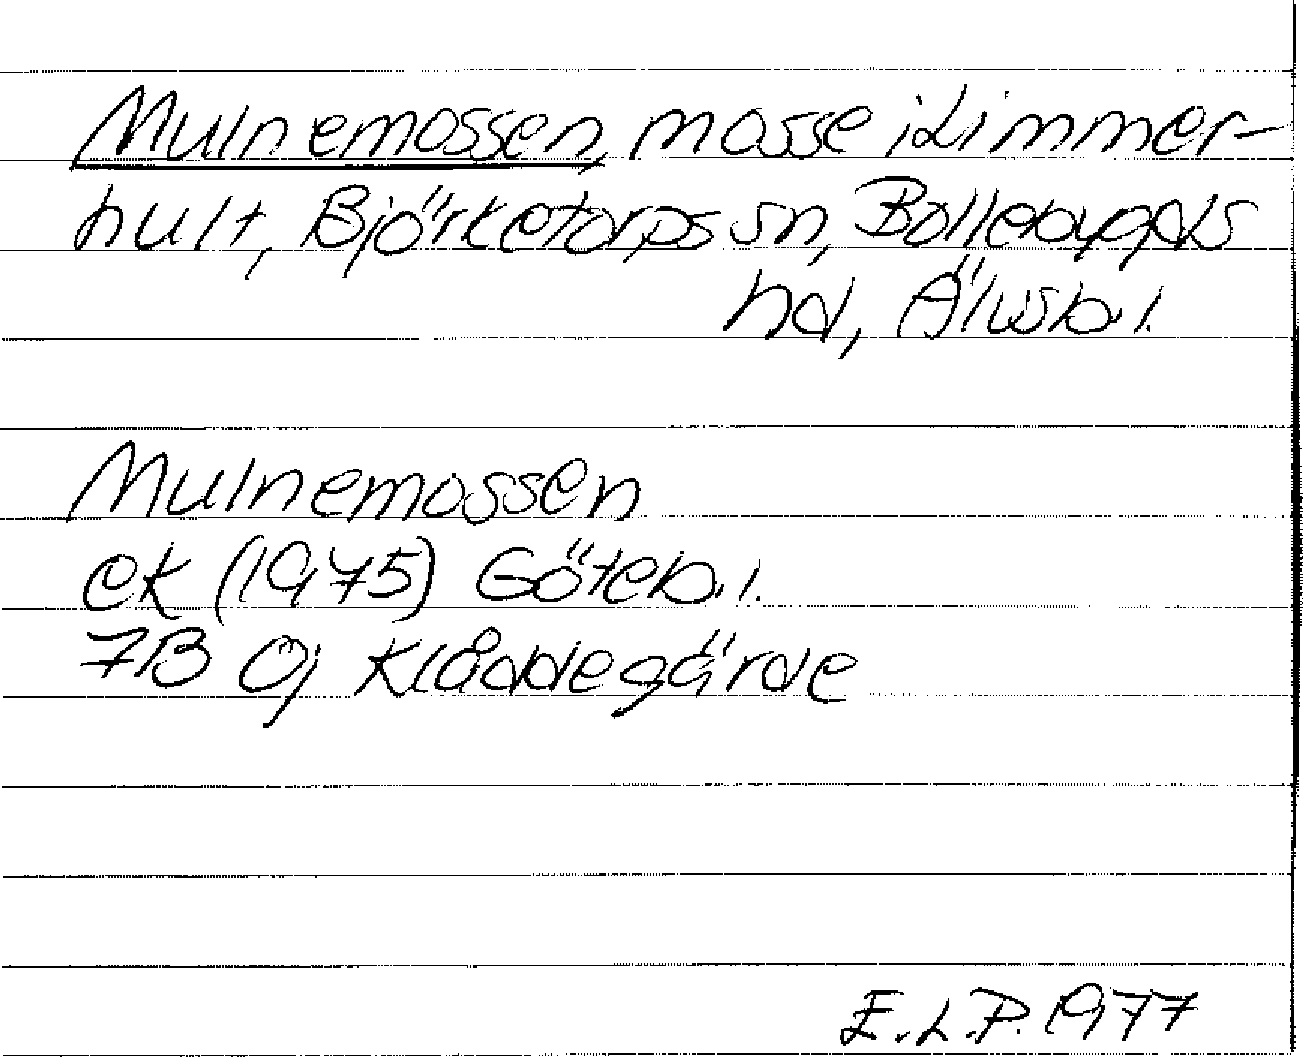 Mulnemossen, mosse i Limmer-
hult, Björketorps sn, Bollebygds
hd, Älvsb. l.
Mulnemossen
ek (1975) Göteb. l.
7B 0j Klåddegärde
E.L.P. 1977